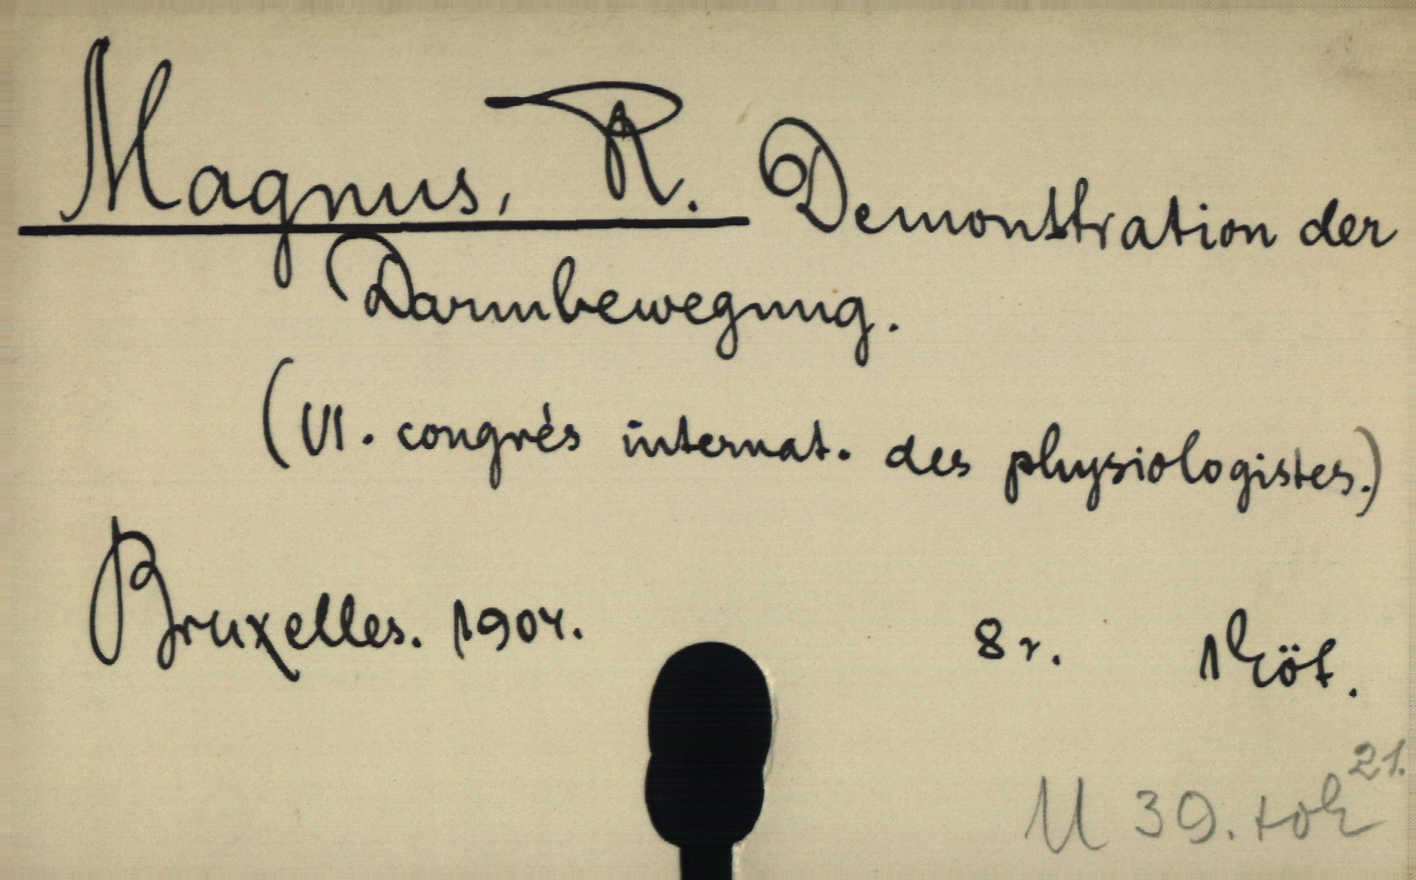 Magnus, R. Demonstration der
Darmbewegung.
(VI. congrés internat. des physiologistes.)
Bruxelles. 1904. 8 r. 1 köt.
U 39. tok 21.